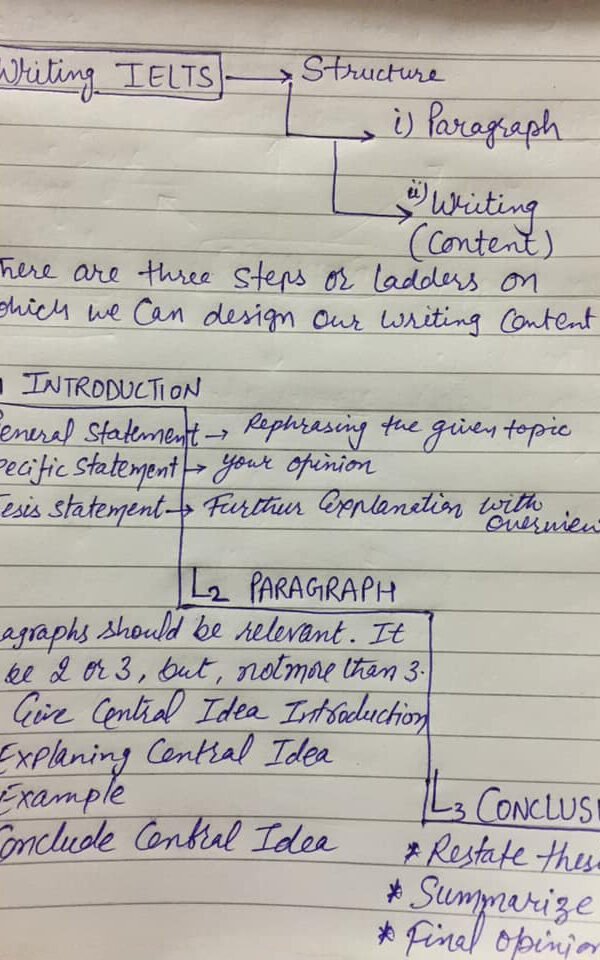 Writing IELTS → Structure
i) Paragraph
ii) Writing
(Content)
here are three steps or ladders on
which we can design our writing content
1 INTRODUCTION
General Statement → Rephrasing the given topic
pecific Statement → your opinion
esis Statement → Further Explanation with
overview
2 PARAGRAPH
agraphs should be relevant. It
be 2 or 3, but, not more than 3.
Give Central Idea Introduction
Explaning Central Idea
Example
Conclude Central Idea
3 CONCLUSI
* Restate thes
* Summarize
* Final opinion